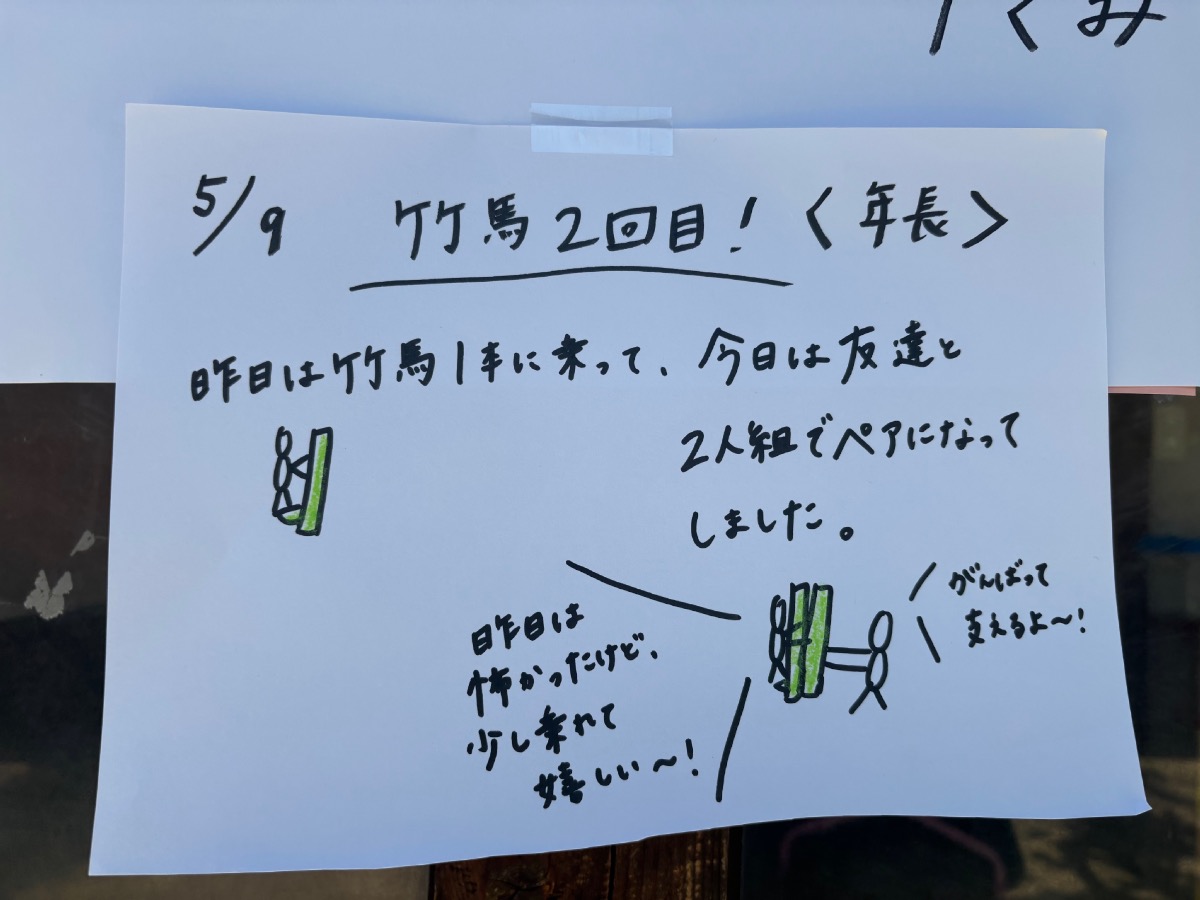 くみ
5/9 竹馬2回目! <年長>
昨日は竹馬1本に乗って、今日は友達と
2人組でペアになって
しました。
がんばって
支えるよ〜!
昨日は
怖かったけど、
少し乗れて
嬉しい〜!